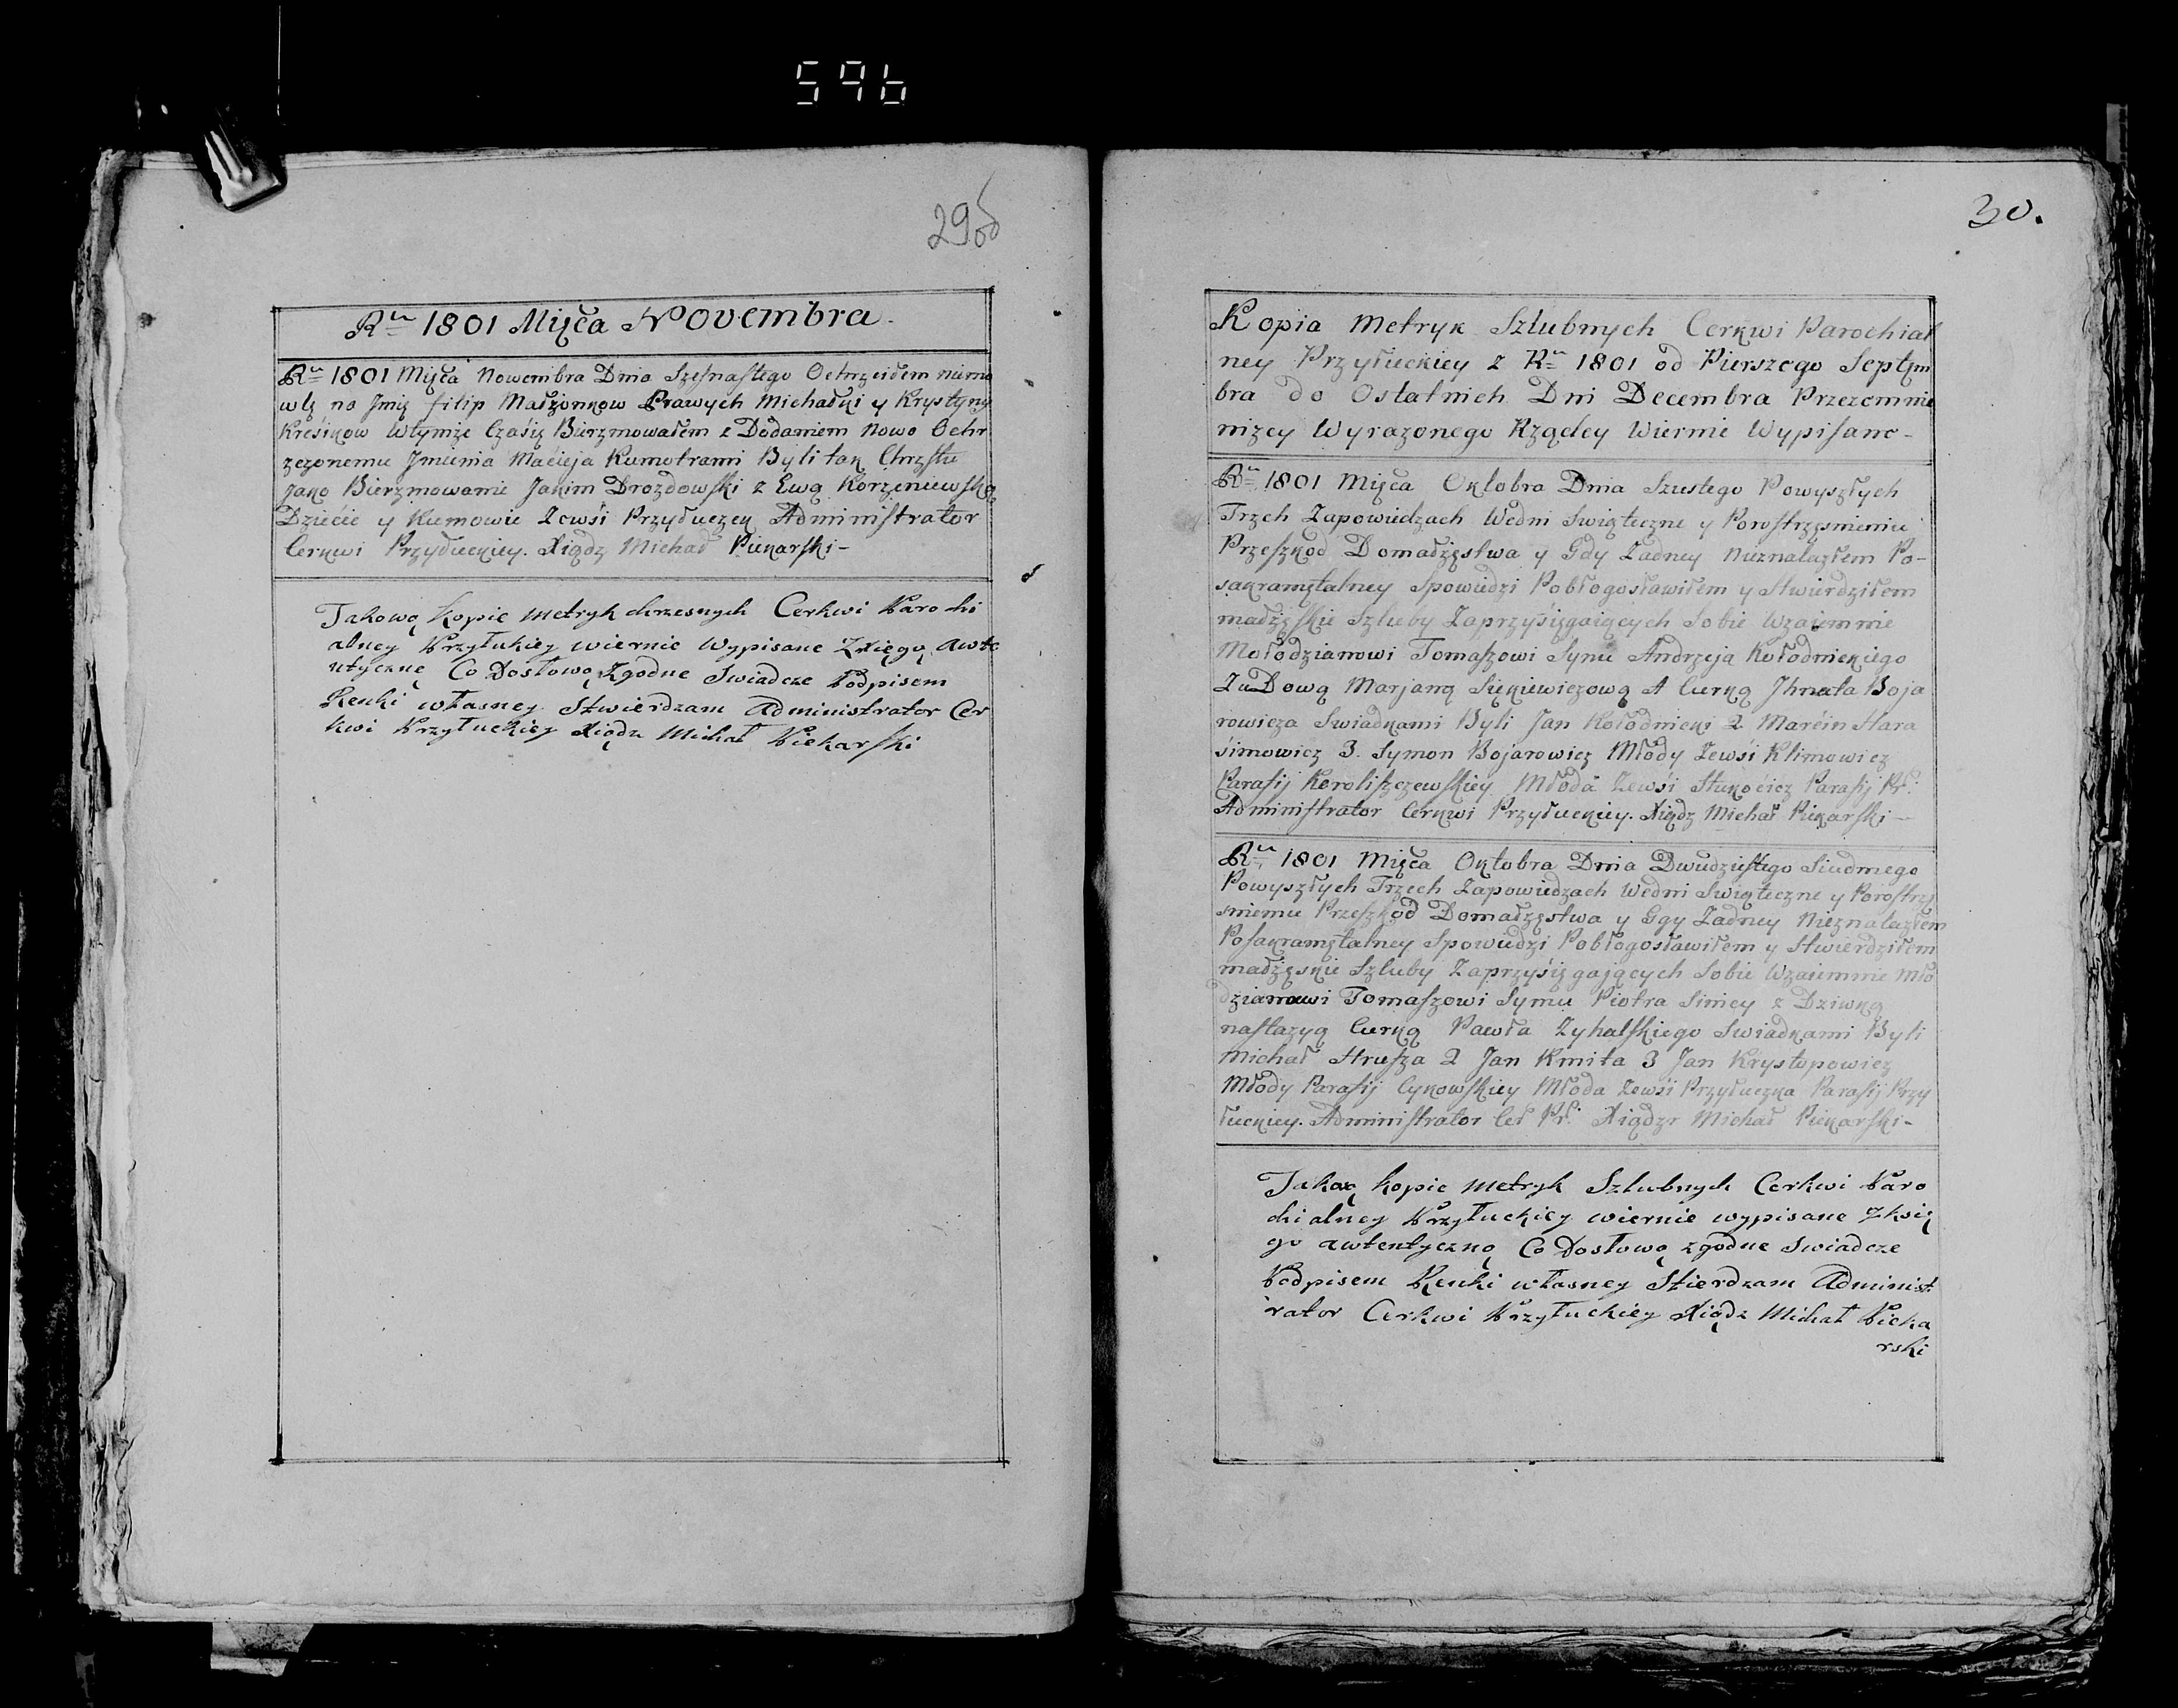 596
29 об
Rᵘ 1801 Mijca Novembra
Rᵘ 1801 Mijca Nowembra Dnia Szesnastego Ochrzciłem niemo
wlę na Jmię filip Małżonkow Prawych Michałki y Krystyny
Kreśikow Wtymże Czaśię Bierzmowałem z Dodaniem Nowo Ochr
zczonemu Jmienia Maćieja Kumotrami Byli tak Chrzstu
jako Bierzmowanie Jakim Drozdowski z Ewą Korzeniewską
Dziećie y Kumowie Zewśi Przyłuczek Administrator
Cerkwi Przyłuckiey. Xiądz Michał Piekarski -
Takową kopie metryk chrzesnych Cerkwi Parochi
alney Przyłukiey wiernie Wypisane Zxięgą awte
ntyczne Co Dosłowo Zgodne Swiadcze Podpisem
Renki własney Stwierdzam Administrator Cer
kwi Przyłuckiey Xiądz Michał Piekarski
30.
Kopia Metryk Szlubnych Cerkwi Parochial
ney Przyłuckiey z Rᵘ 1801 od Pierszego Septym
bra do Ostatnich Dni Decembra Przezemnie
niżey Wyrazonego Rządcey Wiernie Wypisano -
Rᵘ 1801 Mijca Oktobra Dnia Szustego Powyszłych
Trzech Zapowiedzach Wedni Swiąteczne y Porostrzęsnieniu
Przeszkod Domadżęstwa y Gdy Zadney Nieznalazłem Po-
sakramętalney Spowiedzi Pobłogosławiłem y Stwierdziłem
madżęskie Szluby Zaprzyśięgaiących Sobie Wzaiemnie
Mołodzianowi Tomaszowi Synu Andrzeja Kołodnickiego
ZuDową Marjaną Sienkiewiczową A Curką Jhnata Boja
rowicza Swiadkami Byli Jan Kołodnicki 2 Marćin Hara
śimowicz 3. Symon Bojarowicz Młody Zewśi Klimowicz
Parafij Koroliszczewskiey Młoda Zewśi Stukocicz Parafij Pł:
Administrator Cerkwi Przyłuckiey. Xiądz Michał Piekarski -
Rᵘ 1801 Mijca Oktobra Dnia Dwudziestego Siudmego
Powyszłych Trzech Zapowiedzach Wedni Swiąteczne y Porostrzę
snieniu Przeszkod Domadżęstwa y Ggy Zadney Nieznalazłem
Posakramętalney Spowiedzi Pobłogosławiłem y Stwierdziłem
madżęskie Szluby Zaprzyśięgających Sobie Wzaiemnie Mło
dzianowi Tomaszowi Synu Piotra Siniey z Dziwką
nastazyą Curką Pawła Zyhalskiego Swiadkami Byli
Michał Strusza 2 Jan Kmita 3 Jan Krystopowicz
Młody Parafij Cykowskiey Młoda Zewśi Przyłuczka Parafij Przy
łuckiey. Administrator Ceł Pł: Xiądz Michał Piekarski -
Takoą kopie metryk Szlubnych Cerkwi Paro
chialney Przyłuckiey wiernie wypisane Zksię
go awtentyczną Co Dosłowo zgodne Swiadcze
Podpisem Renki własney Stierdzam Administ
rator Cerkwi Przyłuckiey Xiądz Michał Pieka
rski